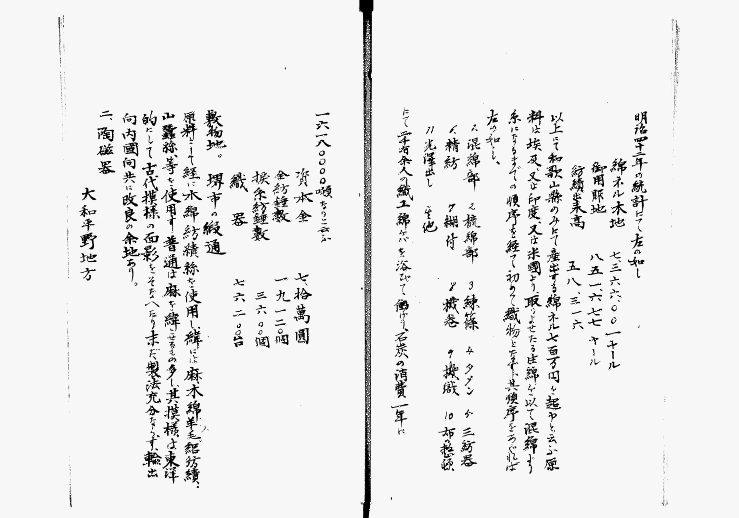 明治四十二年の統計にて左の如し
綿ネル木地 七、三六六、〇〇一ヤール
御用服地 八五一六七七ヤール
紡績出来高 五八、三一六
以上にて和歌山縣のみにて産出する綿ネル七百万円を超やと云ふ原
料は埃及又は印度又は米國より取りよせたる生綿を以て混綿より
糸になるまでの順序を経て初めて織物となす其順序をつぐれば
左の如し、
1、混綿部 2、梳綿部 3、練篠 4、タブン 5、三紡器
6、精紡 7、糊付 8、機巻 9、機織 10、
11、光澤出し 其他
にて千有余人の職工綿ゲバを浴びて働けり、石炭の消費一年に
一六一八〇〇〇〇噸なりと云ふ
資本金 七拾萬圓
全紡錘數 一九一二〇個
撚糸紡錘數 三六〇〇個
織器 七六二〇台
敷物地。堺市の緞通
原料として経に木綿紡績絲を使用し緯には麻木綿羊毛絹紡績、
山蠶絲等を使用す普通は麻を緯とせるもの多し其模様は東洋
的にして古代模様の面影をそなへたり未だ製法充分ならず、輸出
向内國向共に改良の余地あり。
二、陶磁器
大和平野地方